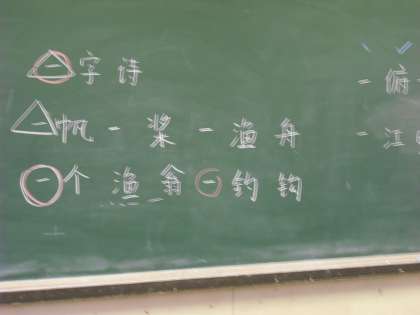 一字诗
一帆一桨一渔舟 一江
一个渔翁一钓钩
一俯